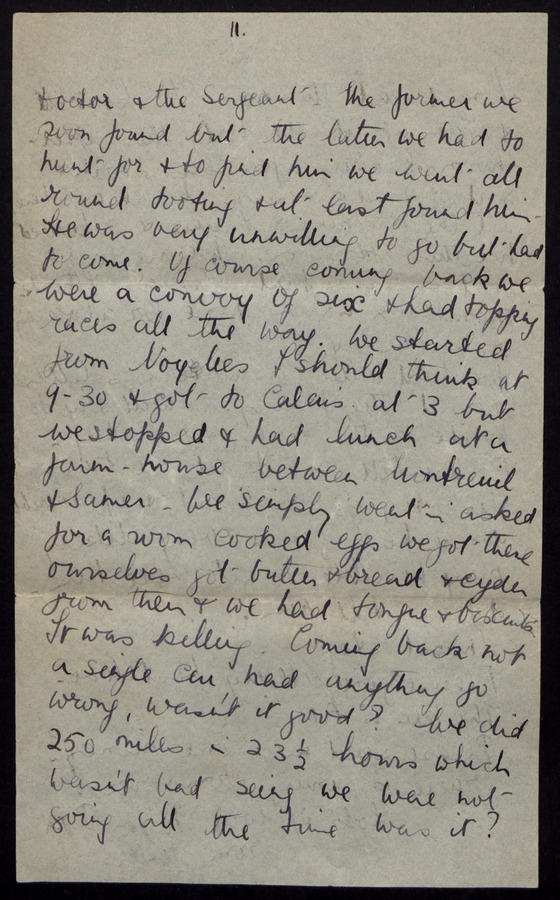 11.
doctor & the Sergeant. The former we
soon found but the latter we had to
hunt for & to find him we went all
round tooting & at last found him.
He was very unwilling to go but had
to come. Of course coming back we
were a convoy of six & had topping
races all the way. We started
from Noyelles I should think at
9-30 & got to Calais at 3 but
we stopped & had lunch at a
farm-house between Montreuil
& Samer - We simply went in asked
for a room cooked eggs we got there
ourselves got butter & bread & cyder
from them & we had tongue & biscuits
It was killing. Coming back not
a single car had anything go
wrong, wasn't it good? We did
250 miles in 23½ hours which
wasn't bad seeing we were not
going all the time was it?